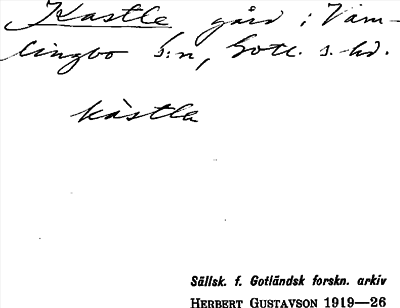 Kastle gård i Väm-
lingbo s:n, Gotl. s. hd.
kàstlα
Sällsk. f. Gotländsk forskn. arkiv
HERBERT GUSTAVSON 1919—26